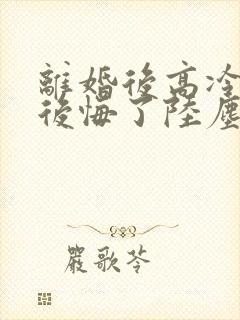 離婚後高冷
後悔了陸塵
嚴歌苓